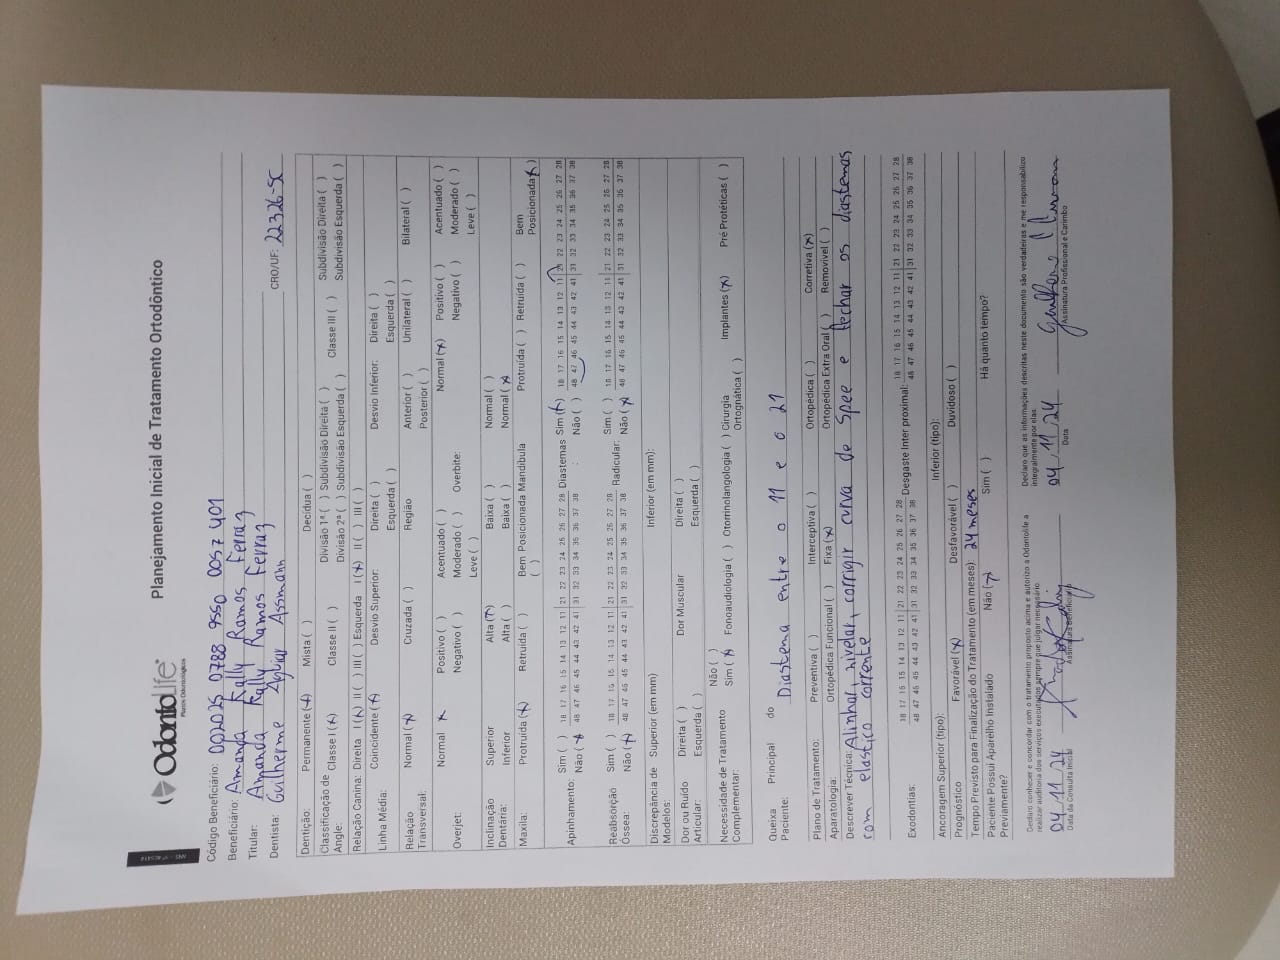 OdontoLife
Planos Odontológicos
Planejamento Inicial de Tratamento Ortodôntico
Código Beneficiário: 002025 0788 9550 0057 401
Beneficiário: Amanda Kelly Ramos Ferraz
Titular: Amanda Kelly Ramos Ferraz
Dentista: Guilherme Assmann CRO/UF: 22326-SC
Dentição: Permanente (x) Mista ( ) Decídua ( )
Classificação de Angle: Classe I (x) Classe II ( ) Divisão 1ª ( ) Subdivisão Direita ( ) Classe III ( ) Subdivisão Direita ( )
Divisão 2ª ( ) Subdivisão Esquerda ( ) Subdivisão Esquerda ( )
Relação Canina: Direita I (x) II ( ) III ( ) Esquerda I (x) II ( ) III ( )
Linha Média: Coincidente (x) Desvio Superior: Direita ( ) Desvio Inferior: Direita ( )
Esquerda ( ) Esquerda ( )
Relação Transversal: Normal (x) Cruzada ( ) Região Anterior ( ) Unilateral ( ) Bilateral ( )
Posterior ( )
Overjet: Normal x Positivo ( ) Acentuado ( ) Overbite: Normal (x) Positivo ( ) Acentuado ( )
Negativo ( ) Moderado ( ) Negativo ( ) Moderado ( )
Leve ( ) Leve ( )
Inclinação Dentária: Superior Alta (x) Baixa ( ) Normal ( )
Inferior Alta ( ) Baixa ( ) Normal (x)
Maxila: Protruída (x) Retruída ( ) Bem Posicionada ( ) Mandíbula Protruída ( ) Retruída ( ) Bem Posicionada (x)
Apinhamento: Sim ( ) 18 17 16 15 14 13 12 11 | 21 22 23 24 25 26 27 28 Diastemas Sim (x) 18 17 16 15 14 13 12 11 | 21 22 23 24 25 26 27 28
Não (x) 48 47 46 45 44 43 42 41 | 31 32 33 34 35 36 37 38 : Não ( ) 48 47 46 45 44 43 42 41 | 31 32 33 34 35 36 37 38
Reabsorção Óssea: Sim ( ) 18 17 16 15 14 13 12 11 | 21 22 23 24 25 26 27 28 Radicular: Sim ( ) 18 17 16 15 14 13 12 11 | 21 22 23 24 25 26 27 28
Não (x) 48 47 46 45 44 43 42 41 | 31 32 33 34 35 36 37 38 Não (x) 48 47 46 45 44 43 42 41 | 31 32 33 34 35 36 37 38
Discrepância de Modelos: Superior (em mm) Inferior (em mm):
Dor ou Ruído Articular: Direita ( ) Dor Muscular Direita ( )
Esquerda ( ) Esquerda ( )
Necessidade de Tratamento Complementar: Não ( )
Sim (x) Fonoaudiologia ( ) Otorrinolangologia ( ) Cirurgia Ortognática ( ) Implantes (x) Pré Protéticas ( )
Queixa Principal do Paciente: Diastema entre o 11 e o 21
Plano de Tratamento: Preventiva ( ) Interceptiva ( ) Ortopédica ( ) Corretiva (x)
Aparatologia: Ortopédica Funcional ( ) Fixa (x) Ortopédica Extra Oral ( ) Removível ( )
Descrever Técnica: Alinhar, nivelar, corrigir curva de Spee e fechar os diastemas
com elastico corrente
Exodontias: 18 17 16 15 14 13 12 11 | 21 22 23 24 25 26 27 28 Desgaste Inter proximal: 18 17 16 15 14 13 12 11 | 21 22 23 24 25 26 27 28
48 47 46 45 44 43 42 41 | 31 32 33 34 35 36 37 38 48 47 46 45 44 43 42 41 | 31 32 33 34 35 36 37 38
Ancoragem Superior (tipo): Inferior (tipo):
Prognóstico Favorável (x) Desfavorável ( ) Duvidoso ( )
Tempo Previsto para Finalização do Tratamento (em meses) 24 meses
Paciente Possui Aparelho Instalado Previamente? Não (x) Sim ( ) Há quanto tempo?
Declaro conhecer e concordar com o tratamento proposto acima e autorizo a Odontolife a
realizar auditoria dos serviços executados sempre que julgar necessário.
Declaro que as informações descritas neste documento são verdadeiras e me responsabilizo
integralmente por elas
04/11/24
Data da Consulta Inicial
Assinatura Beneficiário
04/11/24
Data
Assinatura Profissional e Carimbo